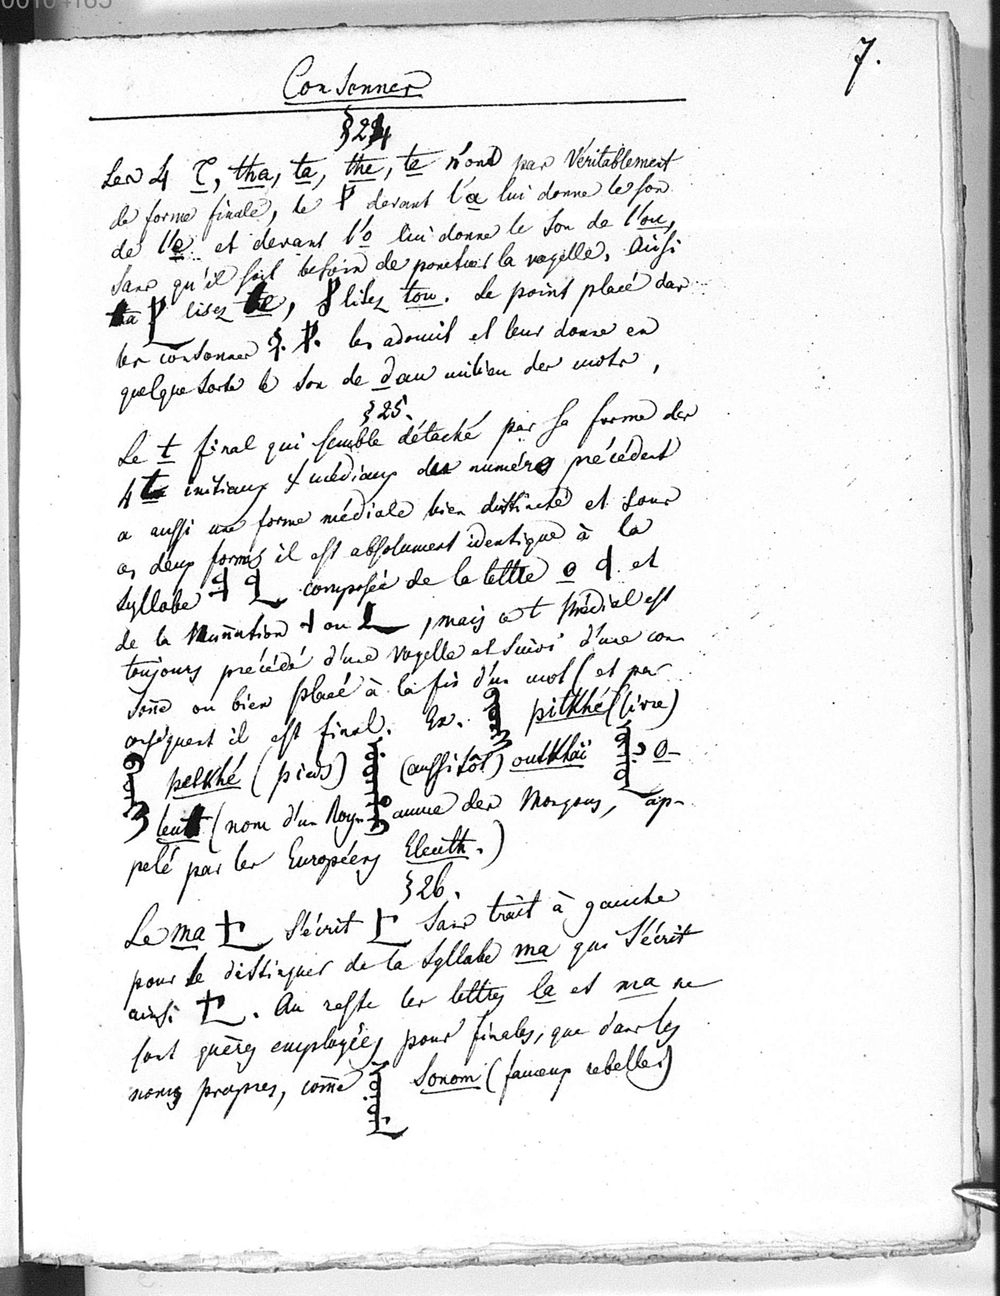 00104165
7.
Consonnes
§ 24
Les 4 ꡐ, tha, ta, the, te n'ont pas véritablement
de forme finale, le devant l'a lui donne le son
de l'e et devant l'o lui donne le son de l'ou,
sans qu'il soit besoin de ponctuer la voyelle. Ainsi
ta lisez te, lisez tou. Le point placé dans
les consonnes les adoucit et leur donne en
quelque sorte le son de d au milieu des mots,
§ 25.
Le t final qui semble détaché par sa forme des
4 t initiaux & médiaux du numéro précédent
a aussi une forme médiale bien distincte et sous
ces deux formes il est absolument identique à la
syllabe composée de la lettre o et
de la Nunnation ou , mais ce t médial est
toujours précédé d'une voyelle et suivi d'une con
sonne ou bien placé à la fin d'un mot (et par
conséquent il est final. Ex. pitkhé (livre)
petkhé (pieds) (aussitôt) outkhaï , o-
leut (nom d'un Royaume des Mongous, ap-
pelé par les Européens Eleuth.)
§ 26.
Le ma s'écrit sans trait à gauche
pour le distinguer de la syllabe ma qui s'écrit
ainsi . Au reste les lettres la et ma ne
sont guères employées pour finales, que dans les
noms propres, com̄e Sonom (fameux rebelles)